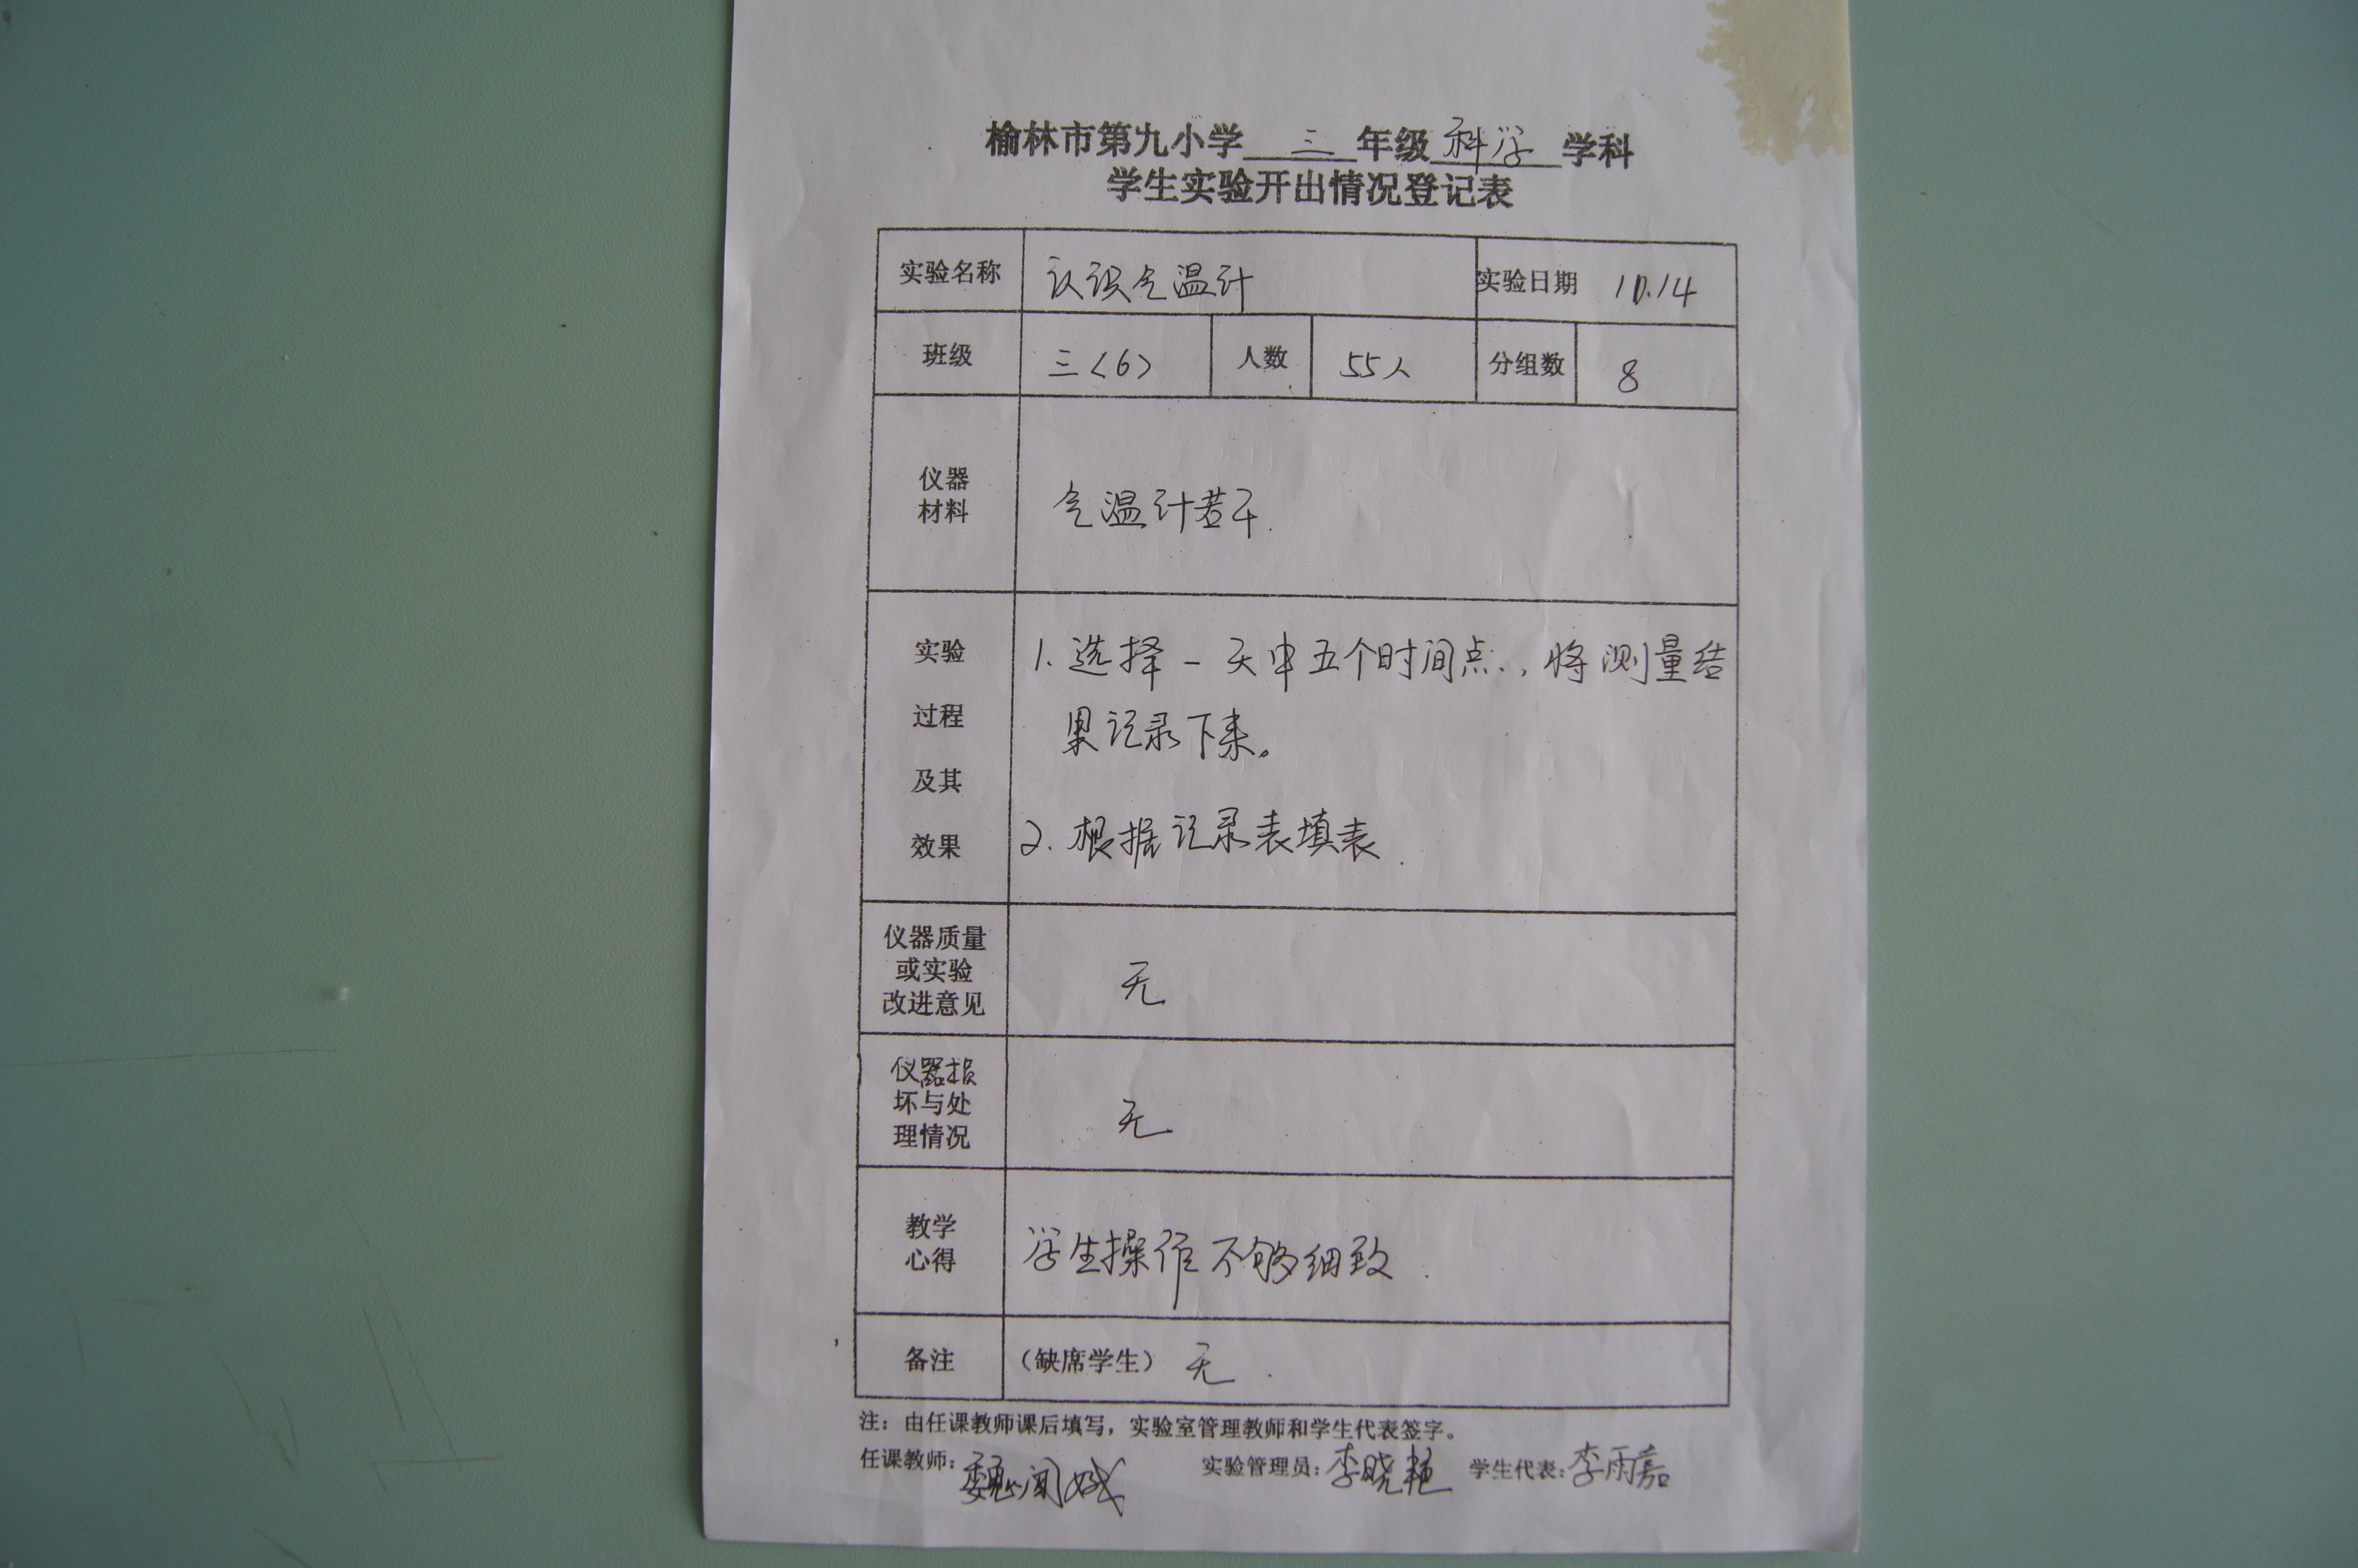 榆林市第九小学 三 年级 科学 学科
学生实验开出情况登记表
实验名称 认识气温计 实验日期 10.14
班级 三〈6〉 人数 55人 分组数 8
仪器
材料
气温计若干.
实验
过程
及其
效果
1. 选择一天中五个时间点.,将测量结
果记录下来。
2. 根据记录表填表.
仪器质量
或实验
改进意见
无
仪器损
坏与处
理情况
无
教学
心得
学生操作不够细致.
备注 (缺席学生) 无.
注:由任课教师课后填写,实验室管理教师和学生代表签字。
任课教师: 实验管理员:李晓艳 学生代表:李雨嘉